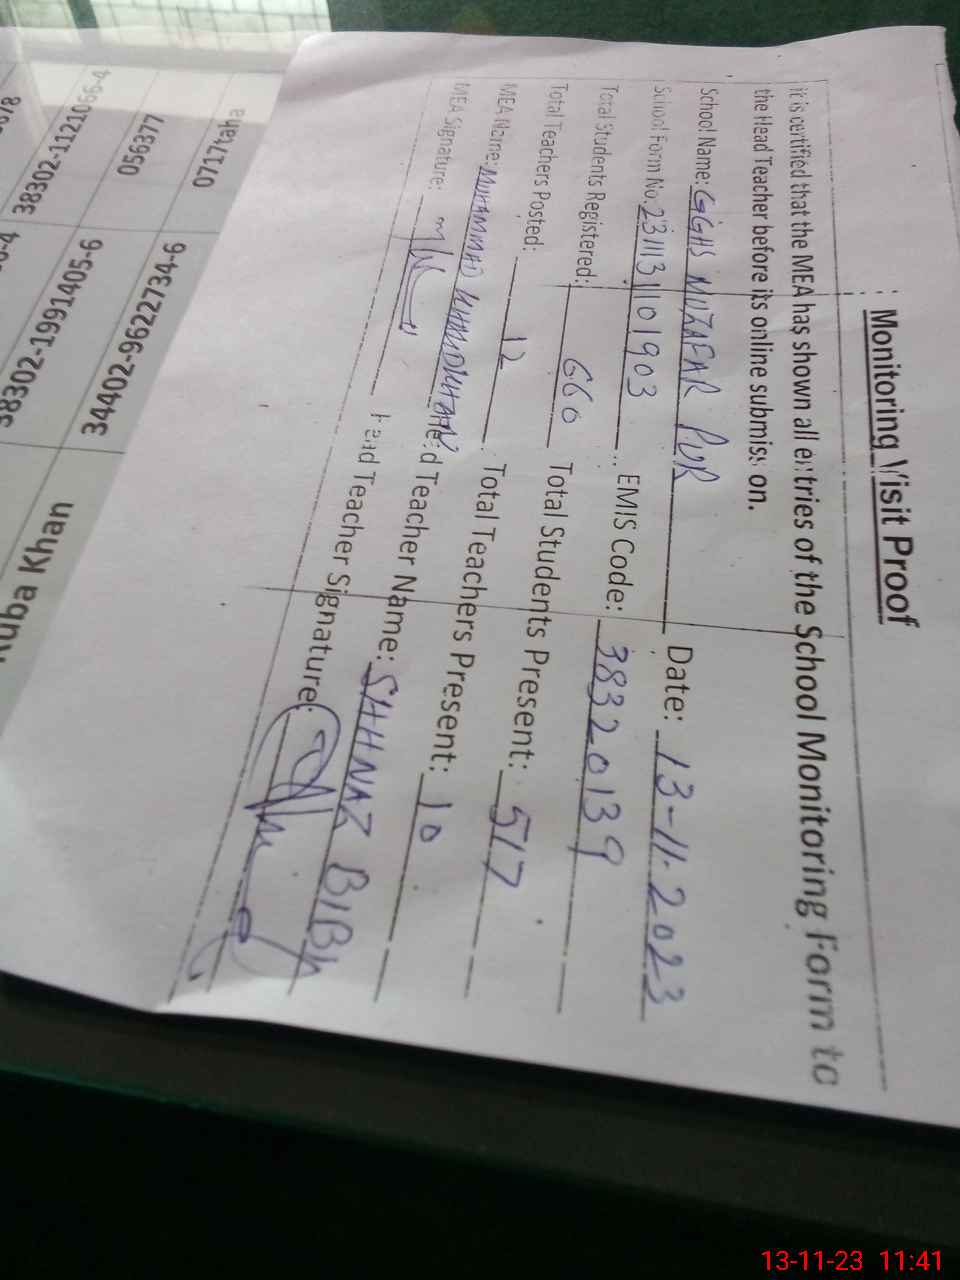 Monitoring Visit Proof
It is certified that the MEA has shown all entries of the School Monitoring Form to
the Head Teacher before its online submission.
School Name: GGHS MUZAFAR PUR Date: 13-11-2023
School Form No. 231113101903 EMIS Code: 38320139
Total Students Registered: 660 Total Students Present: 517
Total Teachers Posted: 12 Total Teachers Present: 10
MEA Name: MUHAMMAD Head Teacher Name: SHHNAZ BIBI
MEA Signature: Head Teacher Signature:
0717
34402-9622734-6
056377
38302-1991405-6
Khan
13-11-23 11:41